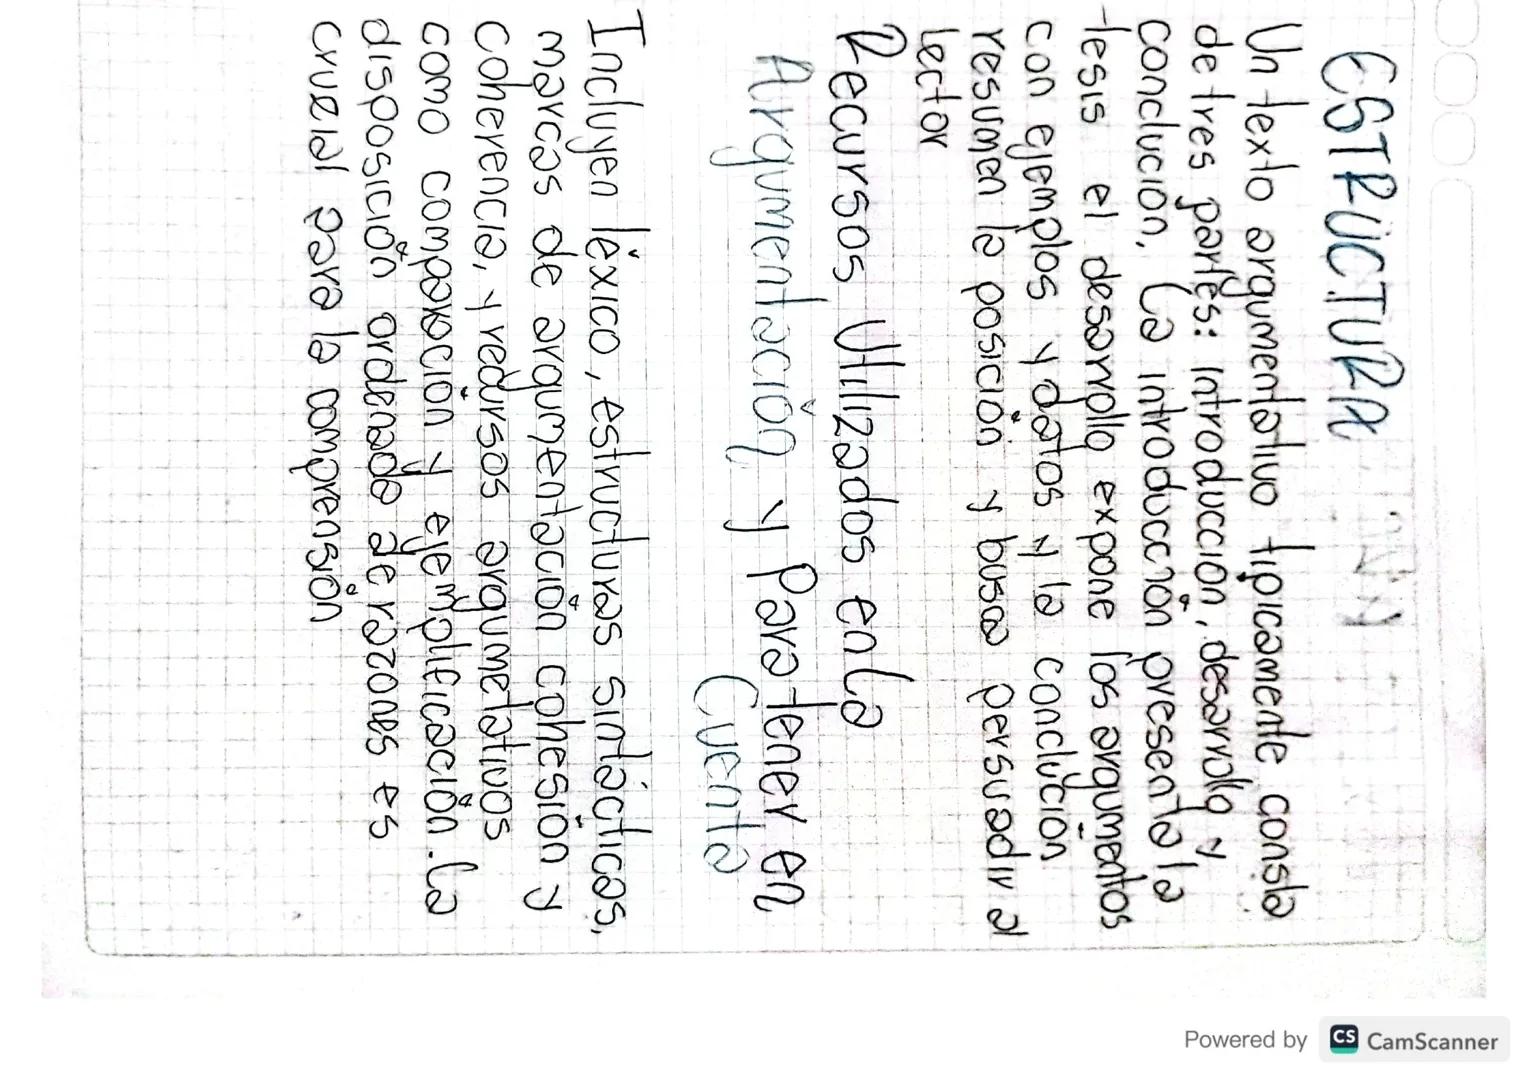 ESTRUCTURA
Un texto argumentativo tipicamente consta
de tres partes: introduccion, desarrollo y
conclucion. La introducción presenta la
tesis el desarrollo expone los argumentos
con ejemplos y datos y la conclución
resumen la posición y busca persuadir al
lector
Recursos Utilizados en la
Argumentación y Para tener en
Cuenta
Incluyen léxico, estructuras sintácticas,
marcas de argumentación cohesión y
coherencia, y recursos argumetativos
como comparación y ejemplificación. La
disposición ordenada de razones es
crucial para la comprensión
Powered by CS CamScanner